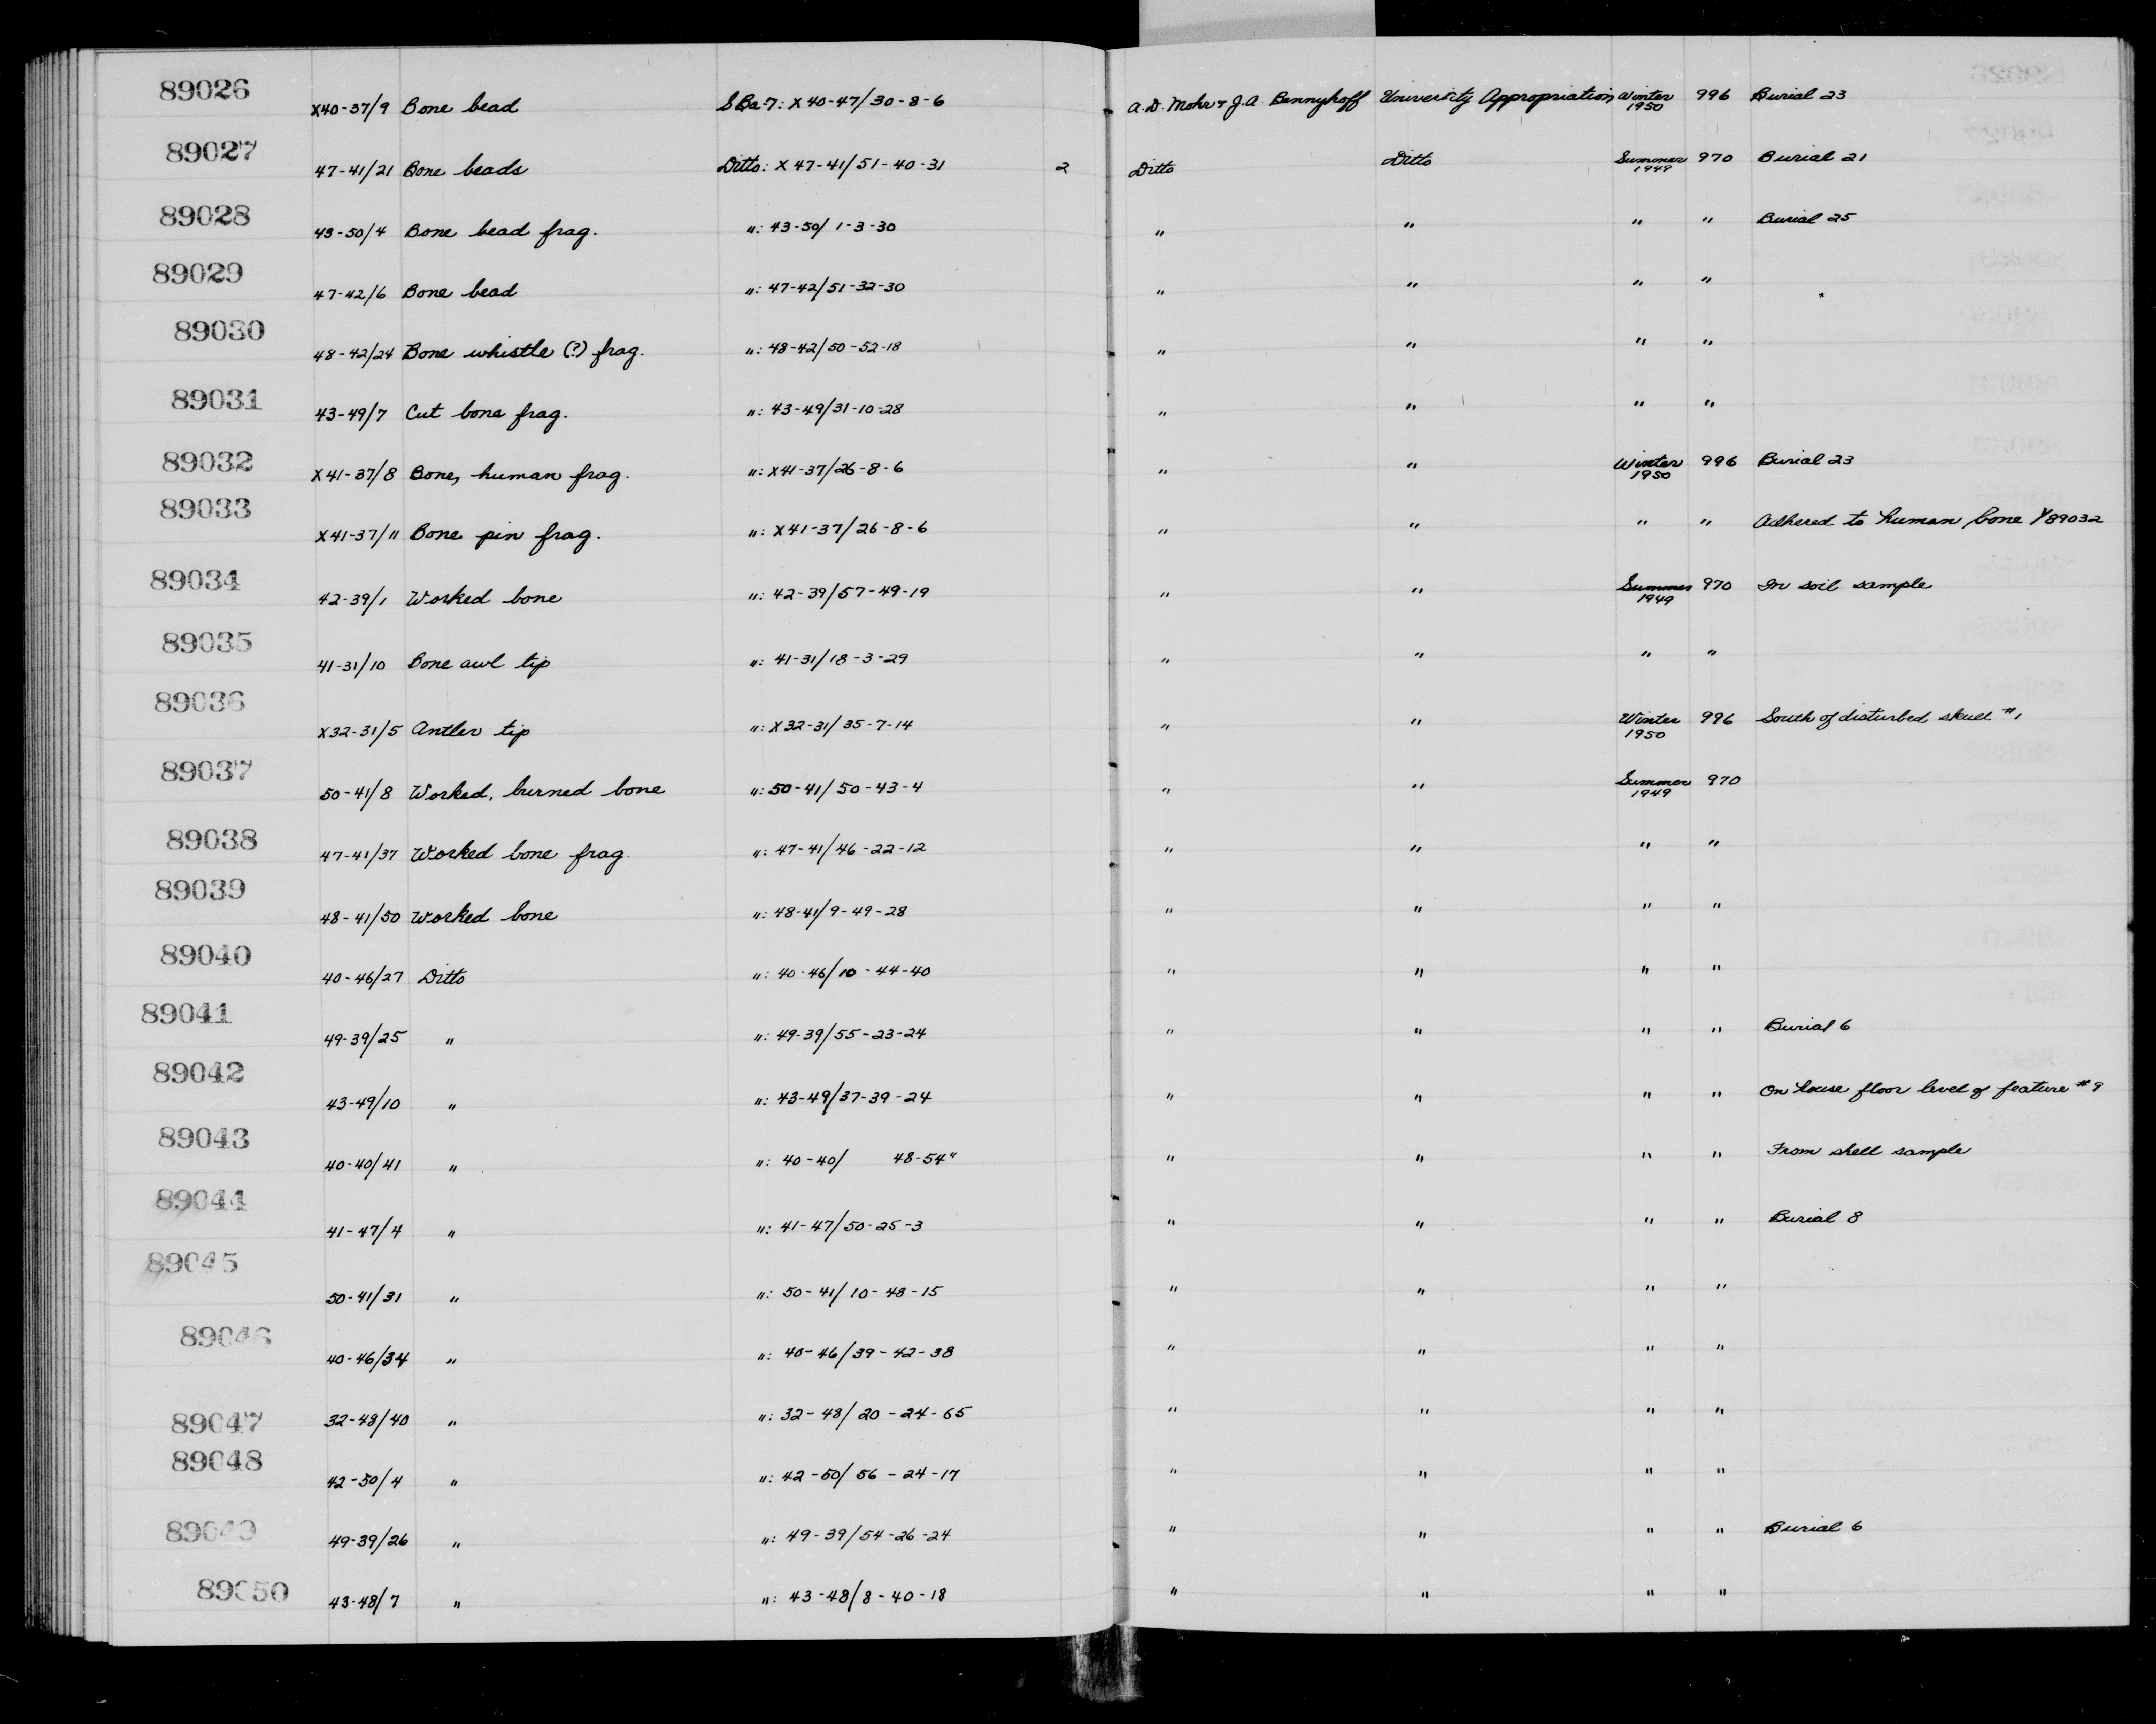 89026 X40-37/9 Bone bead SBa-7: X 40-47/30-8-6 A. D. Mohr & J. A. Bennyhoff University Appropriation Winter 1950 996 Burial 23
89027 47-41/21 Bone beads Ditto: X 47-41/51-40-31 2 Ditto Ditto Summer 1949 970 Burial 21
89028 43-50/4 Bone bead frag. ": 43-50/1-3-30 " " " " Burial 25
89029 47-42/6 Bone bead ": 47-42/51-32-30 " " " "
89030 48-42/24 Bone whistle (?) frag. ": 48-42/50-52-18 " " " "
89031 43-49/7 Cut bone frag. ": 43-49/31-10-28 " " " "
89032 X41-37/8 Bone, human frag. ": X41-37/26-8-6 " " Winter 1950 996 Burial 23
89033 X41-37/11 Bone pin frag. ": X41-37/26-8-6 " " " " Adhered to human bone Y89032
89034 42-39/1 Worked bone ": 42-39/57-49-19 " " Summer 1949 970 In soil sample
89035 41-31/10 Bone awl tip ": 41-31/18-3-29 " " " "
89036 X32-31/5 Antler tip ": X32-31/35-7-14 " " Winter 1950 996 South of disturbed skull #1
89037 50-41/8 Worked, burned bone ": 50-41/50-43-4 " " Summer 1949 970
89038 47-41/37 Worked bone frag. ": 47-41/46-22-12 " " " "
89039 48-41/50 Worked bone ": 48-41/9-49-28 " " " "
89040 40-46/27 Ditto ": 40-46/10-44-40 " " " "
89041 49-39/25 " ": 49-39/55-23-24 " " " " Burial 6
89042 43-49/10 " ": 43-49/37-39-24 " " " " On house floor level of feature #9
89043 40-40/41 " ": 40-40/ 48-54" " " " " From shell sample
89044 41-47/4 " ": 41-47/50-25-3 " " " " Burial 8
89045 50-41/31 " ": 50-41/10-48-15 " " " "
89046 40-46/34 " ": 40-46/39-42-38 " " " "
89047 32-48/40 " ": 32-48/20-24-65 " " " "
89048 42-50/4 " ": 42-50/56-24-17 " " " "
89049 49-39/26 " ": 49-39/54-26-24 " " " " Burial 6
89050 43-48/7 " ": 43-48/8-40-18 " " " "